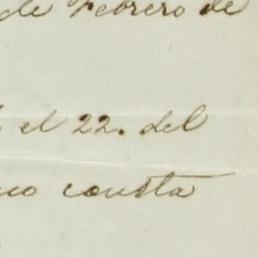 de Febrero de
el 22. del
consta